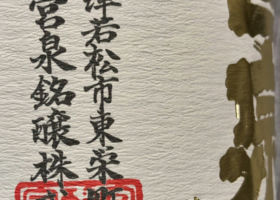 津若松市東栄町
宮泉銘醸株式